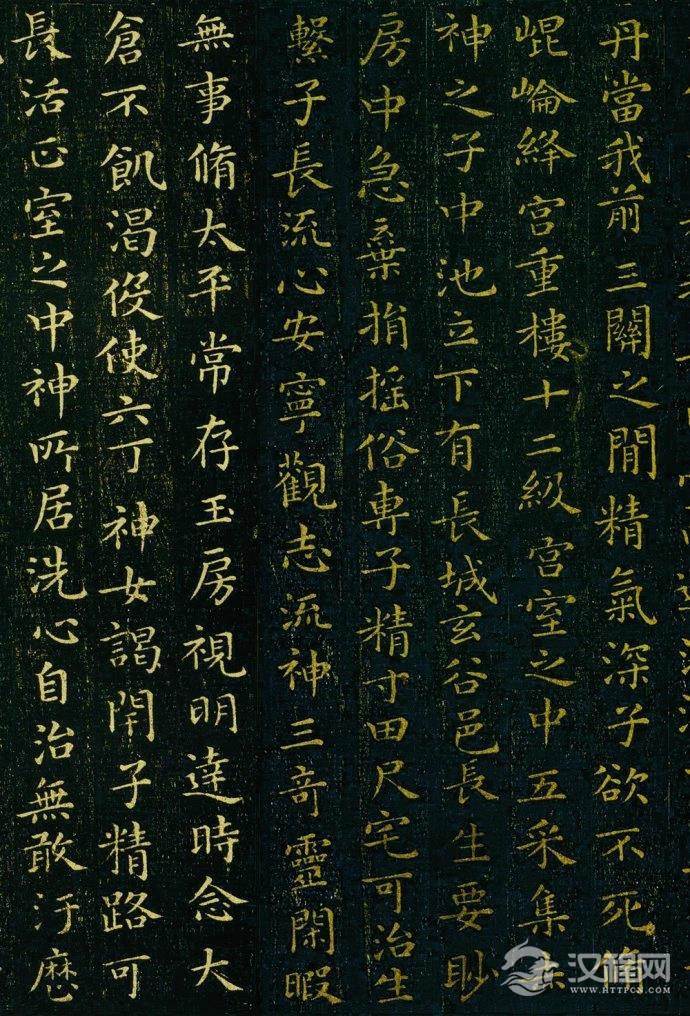 丹當我前三關之閒精氣深子欲不死脩
崐崘絳宮重樓十二級宮室之中五采集赤
神之子中池立下有長城玄谷邑長生要眇
房中急棄捐搖俗專子精寸田尺宅可治生
繫子長流心安寧觀志流神三奇靈閑暇
無事脩太平常存玉房視明達時念大
倉不飢渴伇使六丁神女謁閇子精路可
長活正室之中神所居洗心自治無敢汙歷
汉程网
WWW.HTTPCN.COM